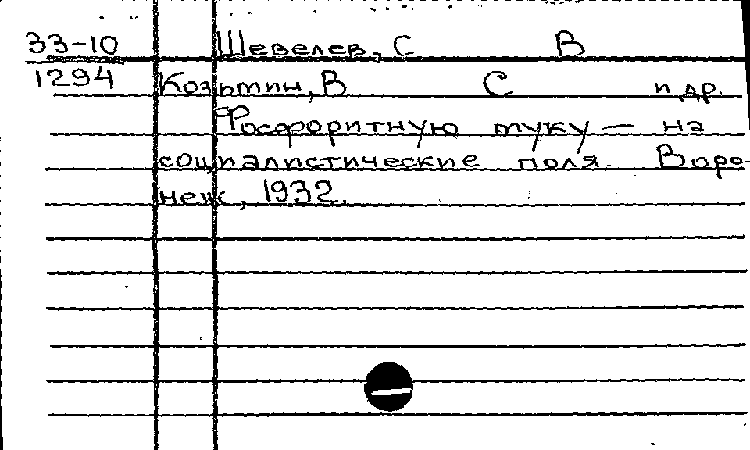 33-10 Шевелев, С В
1294 Козьмин, В С и др.
Фосфоритную муку — на
социалистические поля. Воро-
неж, 1932.